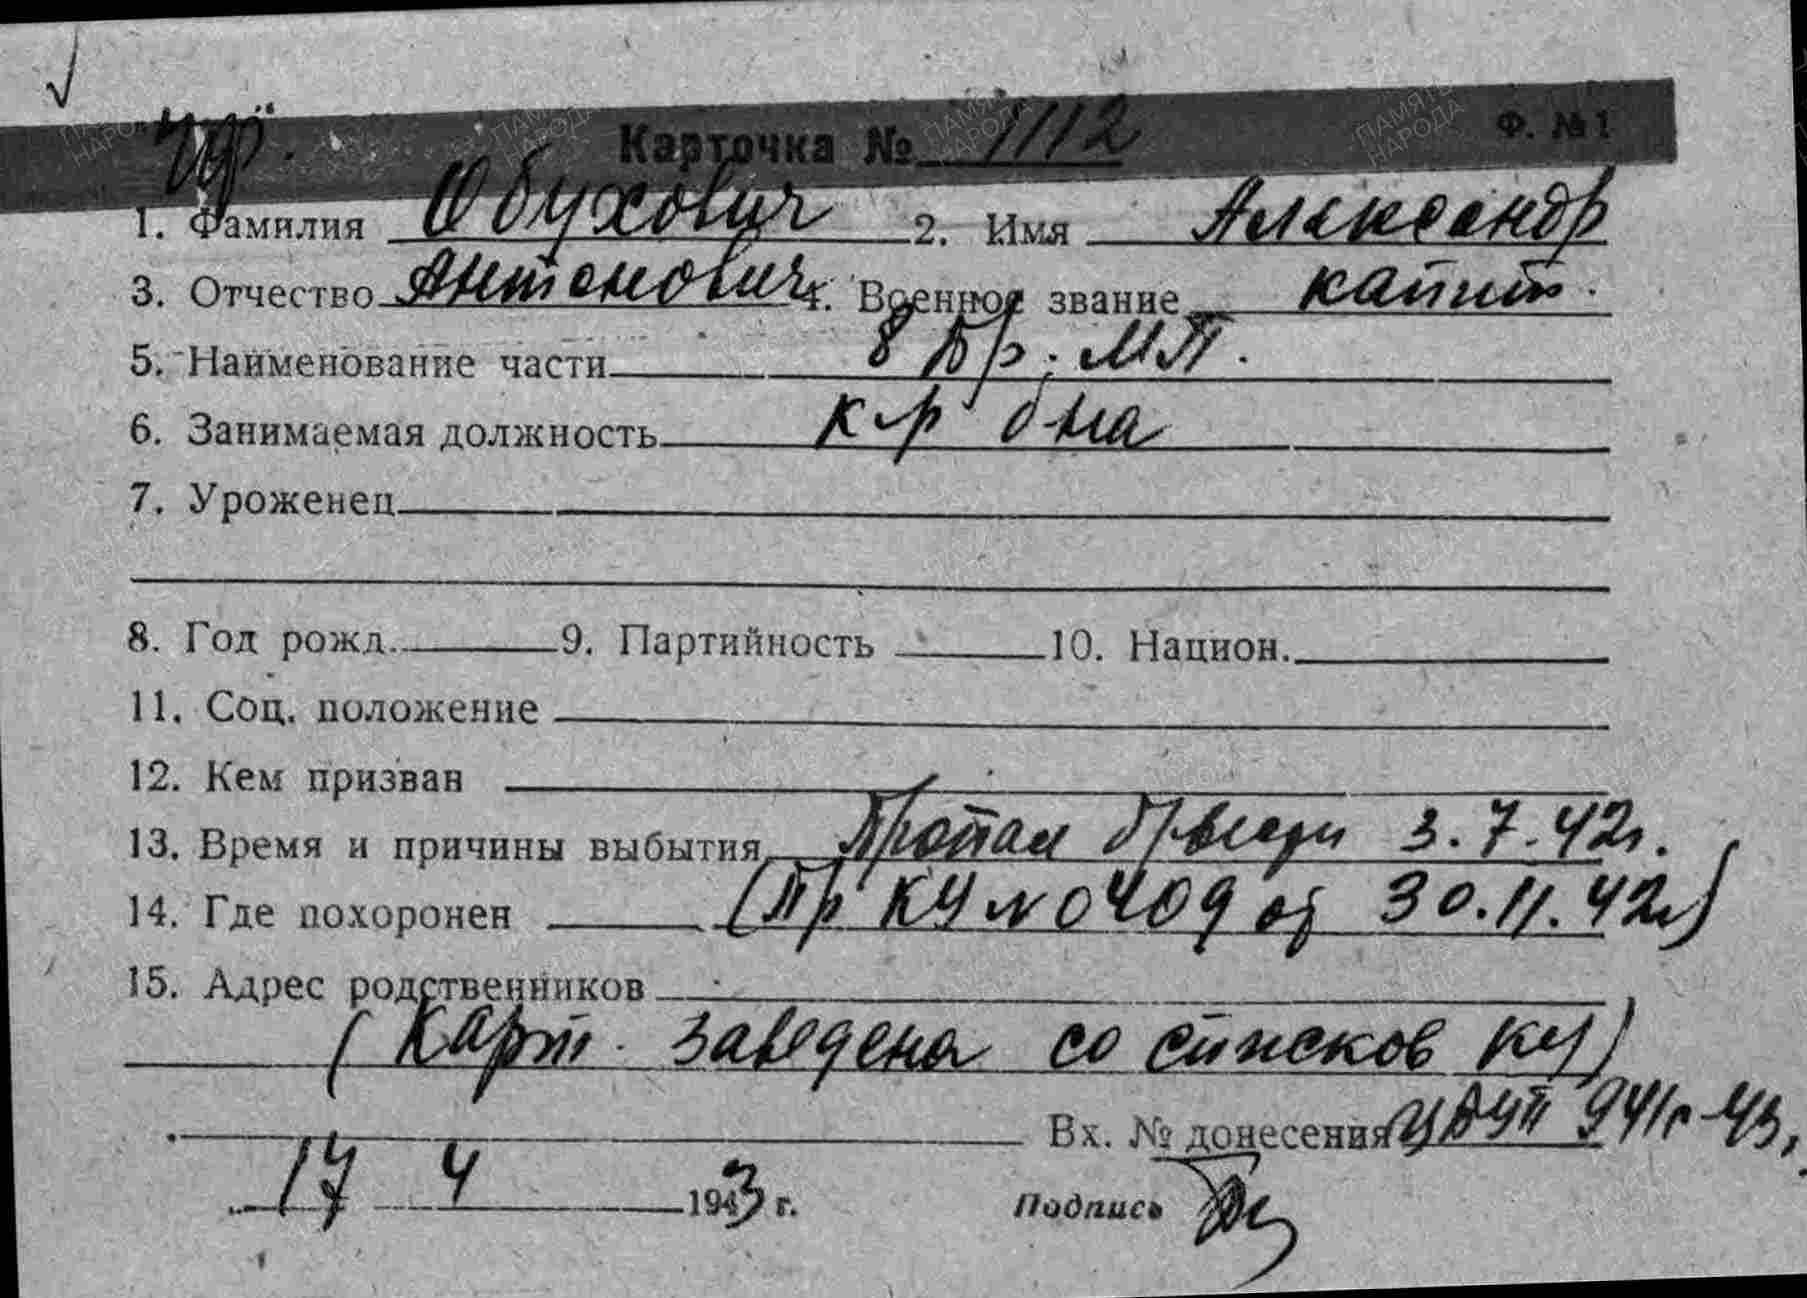 Карточка № 1112 Ф. №1
1. Фамилия Обухович 2. Имя Александр
3. Отчество Антонович 4. Военное звание капит.
5. Наименование части 8 бр. МП.
6. Занимаемая должность к-р б-на
7. Уроженец
8. Год рожд. 9. Партийность 10. Национ.
11. Соц. положение
12. Кем призван
13. Время и причины выбытия Пропал 3.7.42г.
14. Где похоронен (Пр КУ № 0409 от 30.11.42г)
15. Адрес родственников
(Карт. заведена со списков КУ)
Вх. № донесения
17 4 1943 г. Подпись
ПАМЯТЬ НАРОДА